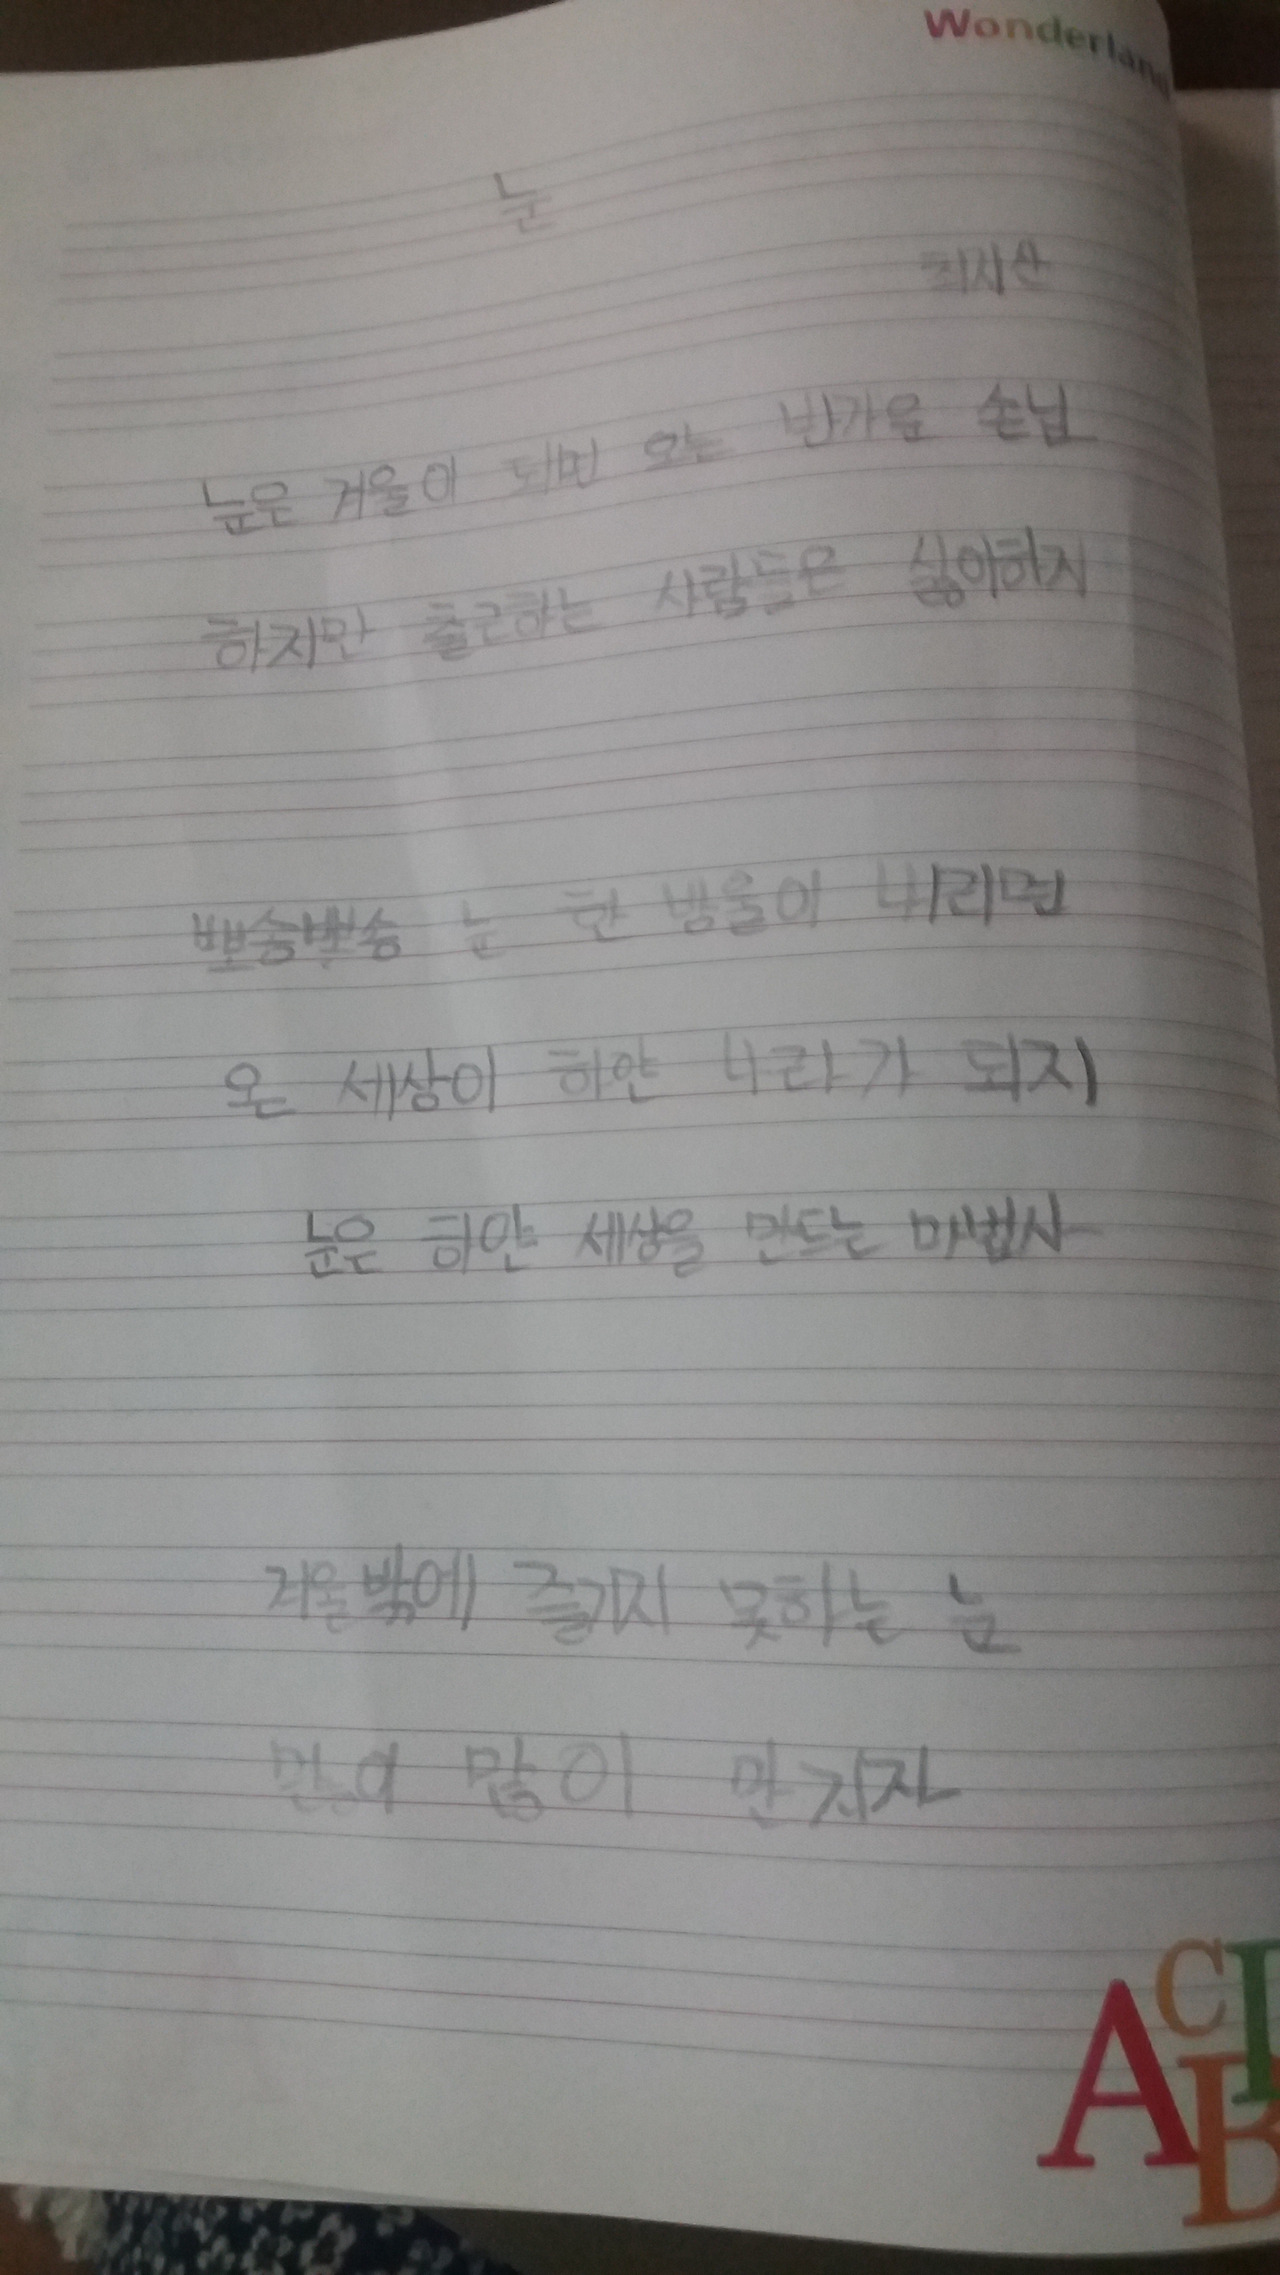 Wonderland
눈
최시산
눈은 겨울이 되면 오는 반가운 손님
하지만 출근하는 사람들은 싫어하지
뽀송뽀송 눈 한 방울이 내리면
온 세상이 하얀 나라가 되지
눈은 하얀 세상을 만드는 마법사
겨울밖에 즐기지 못하는 눈
많이 만지자
A C B